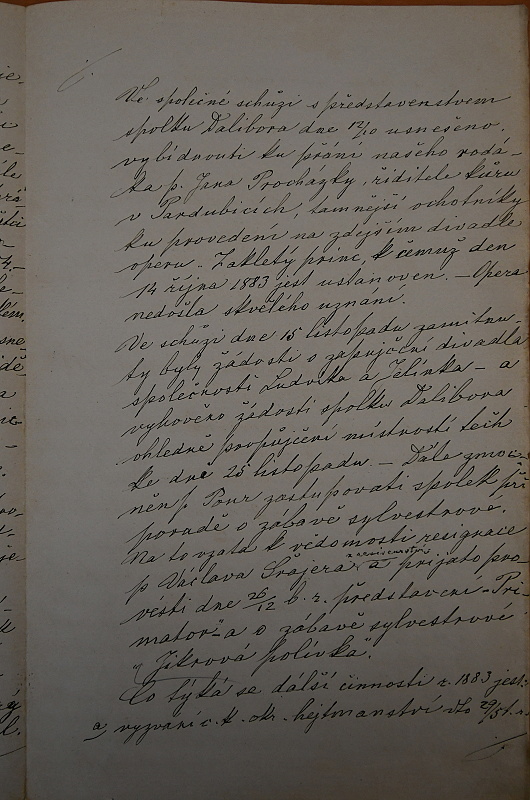 Ve společné schůzi s představenstvem
spolku Dalibora dne 12/10 usnešeno,
vybídnouti ku přání našeho rodá-
ka p. Jana Procházky, ředitele kůru
v Pardubicích, tamnější ochotníky
ku provedení na zdejším divadle
operu „Zakletý princ, k čemuž den
14 října 1883 jest ustanoven. – Opera
nedošla skvělého uznání.
Ve schůzi dne 15 listopadu zamítnu-
ty byly žádosti o zapujčení divadla
společnosti Ludvíka a Jelínka – a
vyhověno žádosti spolku Dalibora
ohledně propůjčení místností těch
ke dni 25 listopadu. – Dále zmoc-
něn p. Pour zastupovati spolek při
poradě o zábavě sylvestrové.
Na to vzata k vědomosti resignace
p Václava Šrajera a přijato pro-
vésti dne 26/12 b. r. představení „Pri-
mator" a o zábavě sylvestrové
„Jikrová polívka".
Co týká se další činnosti r. 1883 jest:
a, vyzvání c. k. okr. hejtmanství dto 29/5 t. r.